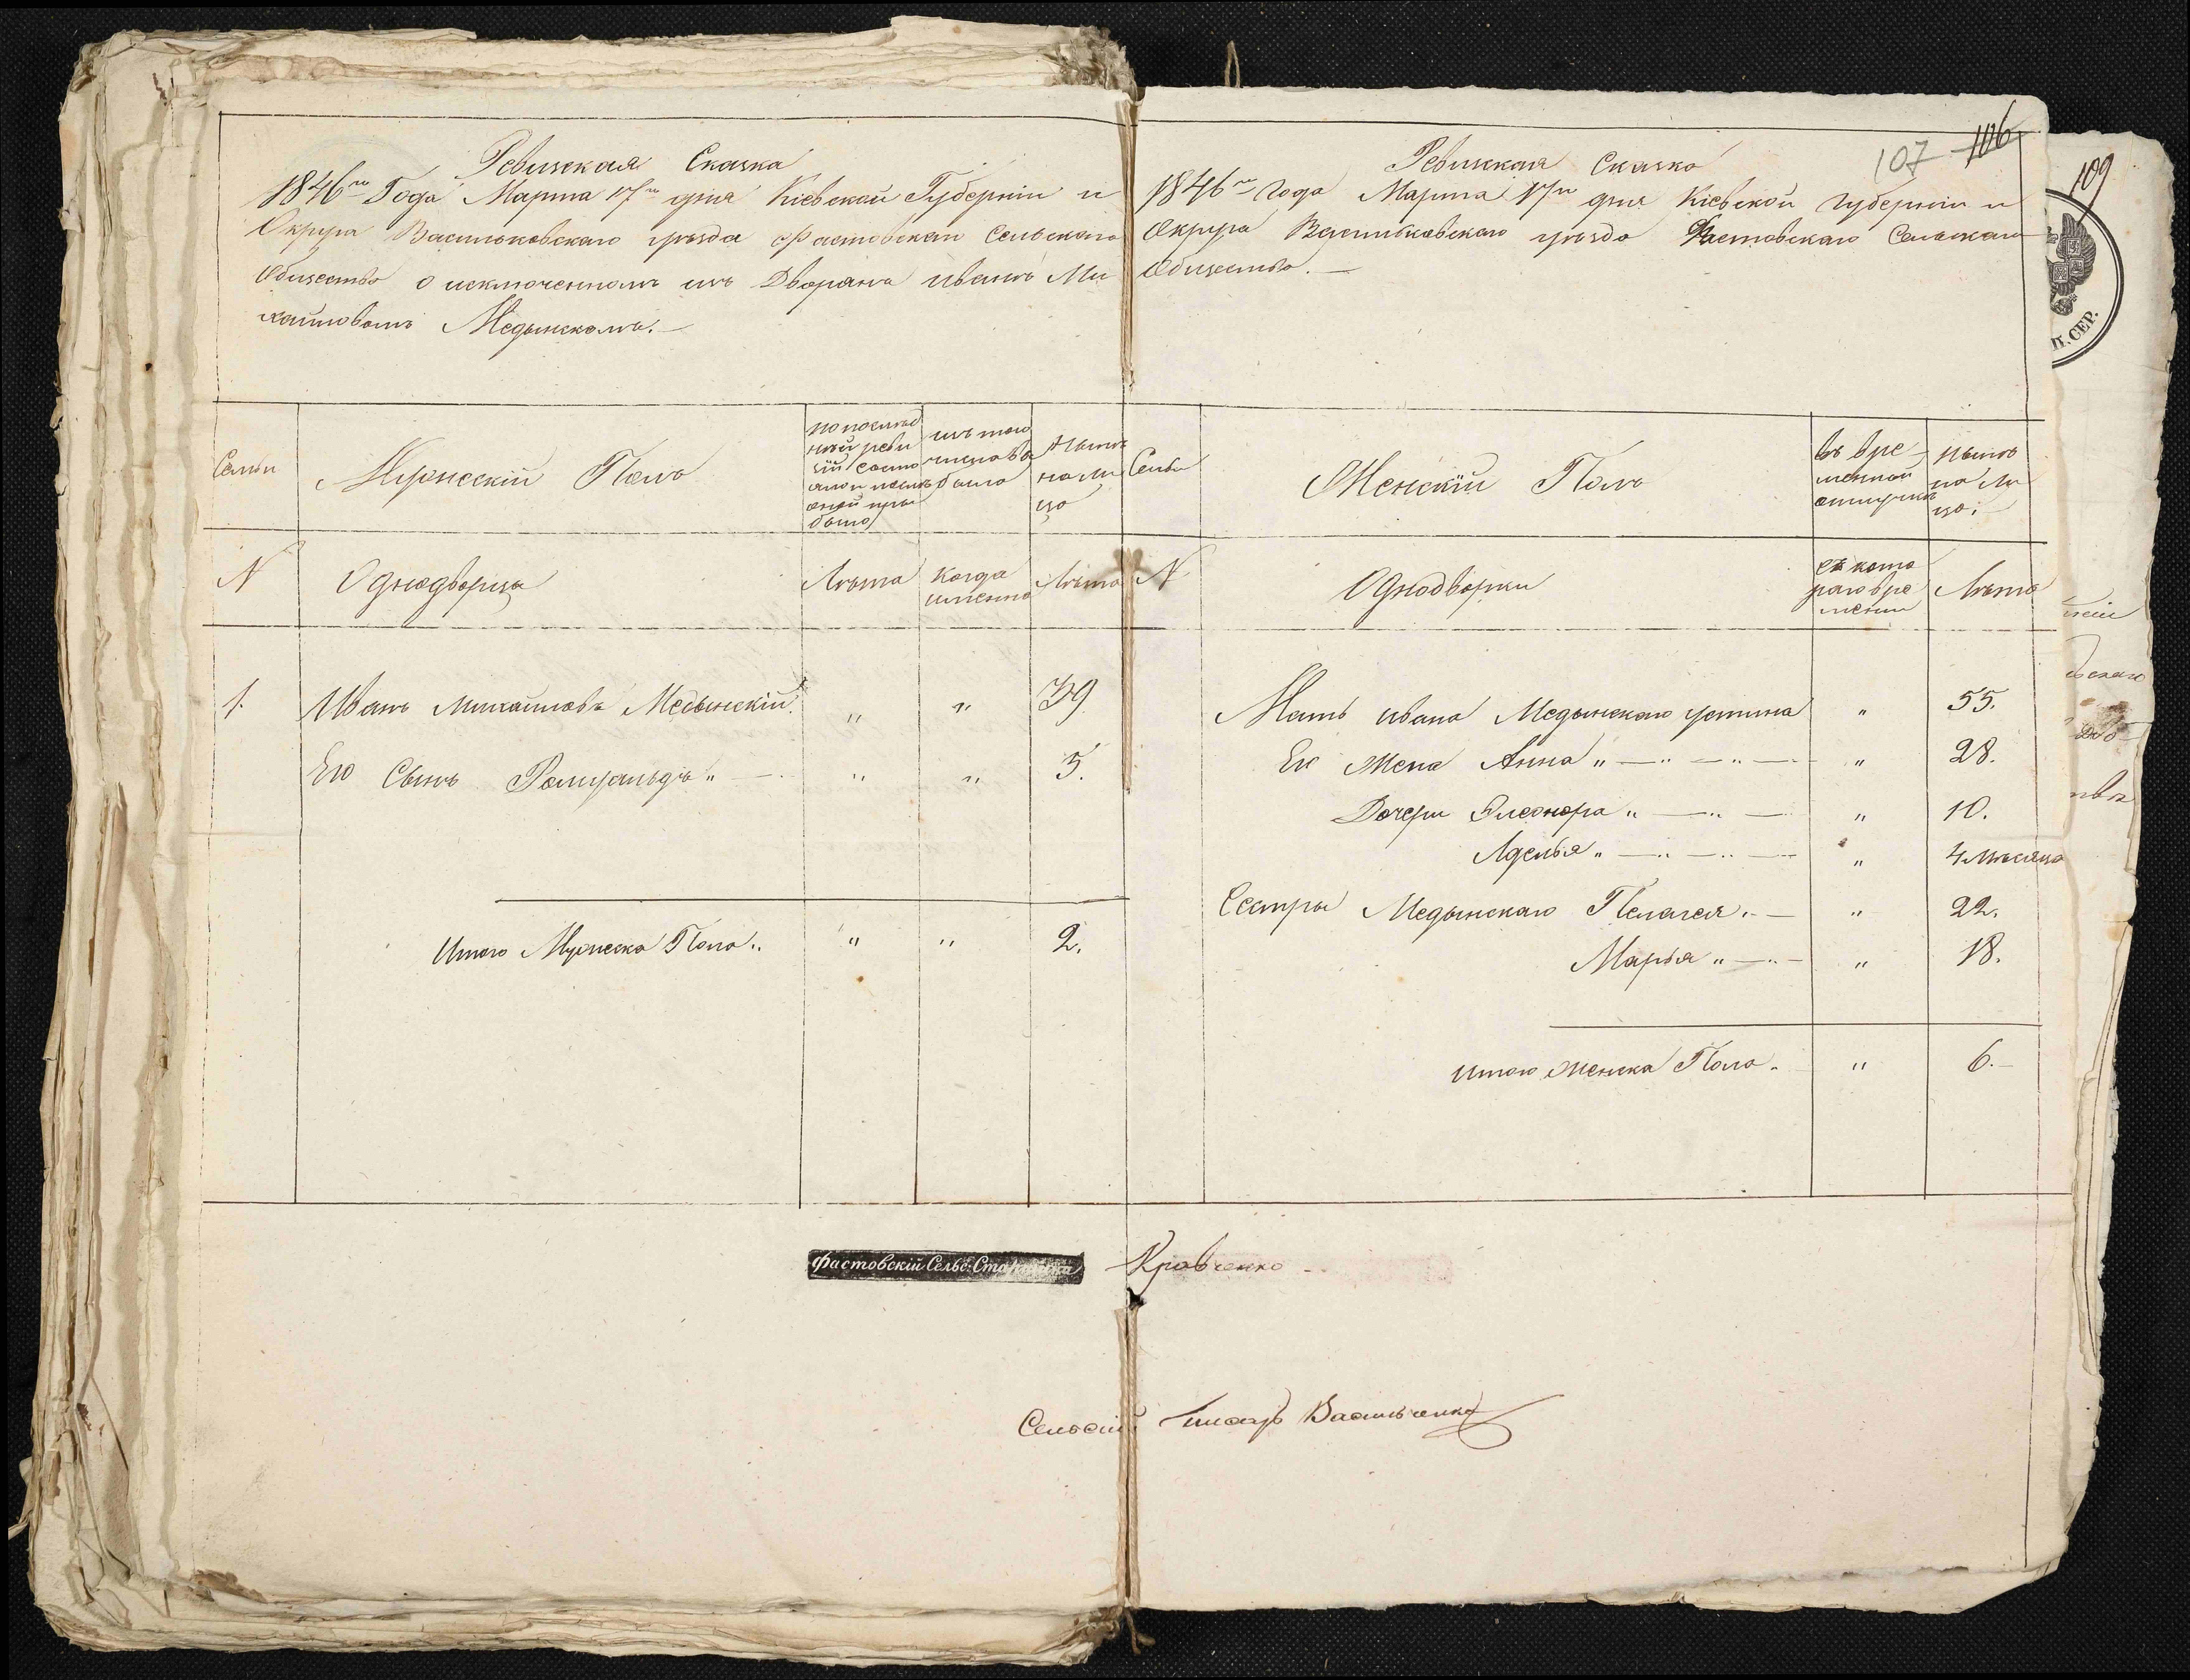 Ревизская Сказка
1846го Года Марта 17го дня Кіевской Губерніи и
Округа Васильковскаго уѣзда Фастовскаго Сельскаго
Общества о исключенномъ изъ Дворянъ иванѣ Ми
хайловомъ Медынскомъ.—
Семьи
Мужескій Полъ
по послѣд
ней реви
зіи состо
яло и послѣ
оной при
было
изъ того
числа вы
было
Нынѣ
на ли
цо
N
Однодворцы
Лѣта
Когда
именно
Лѣта
1.
Иванъ Михайловъ Медынскій
"
"
39
Его Сынъ Ромуальдъ "—
"
"
5.
Итого Мужеска Пола "
"
"
2.
107
106
Ревизская Сказка
1846го Года Марта 17го дня Кіевской Губерніи и
Округа Васильковскаго уѣзда Фастовскаго Сельскаго
Общества.—
Семьи
Женскій Полъ
въ вре-
менной
отлучкѣ
нынѣ
на ли
цо:
N
Однодворки
съ кото
раго вре
мени
Лѣта
Мать ивана Медынскаго устина
"
55.
Его Жена Анна "—"—"—
"
28.
Дочери Элеонора "—"—
"
10.
Аделья "—"—"—
"
4 мѣсяца
Сестры Медынскаго Пелагея "—
"
22.
Марья "—"—
"
18.
итого женска Пола "
"
6.—
Фастовскій Сельс: Старшина
Кравченко
Сельскій Писарь Васильченко
109
П. СЕР.